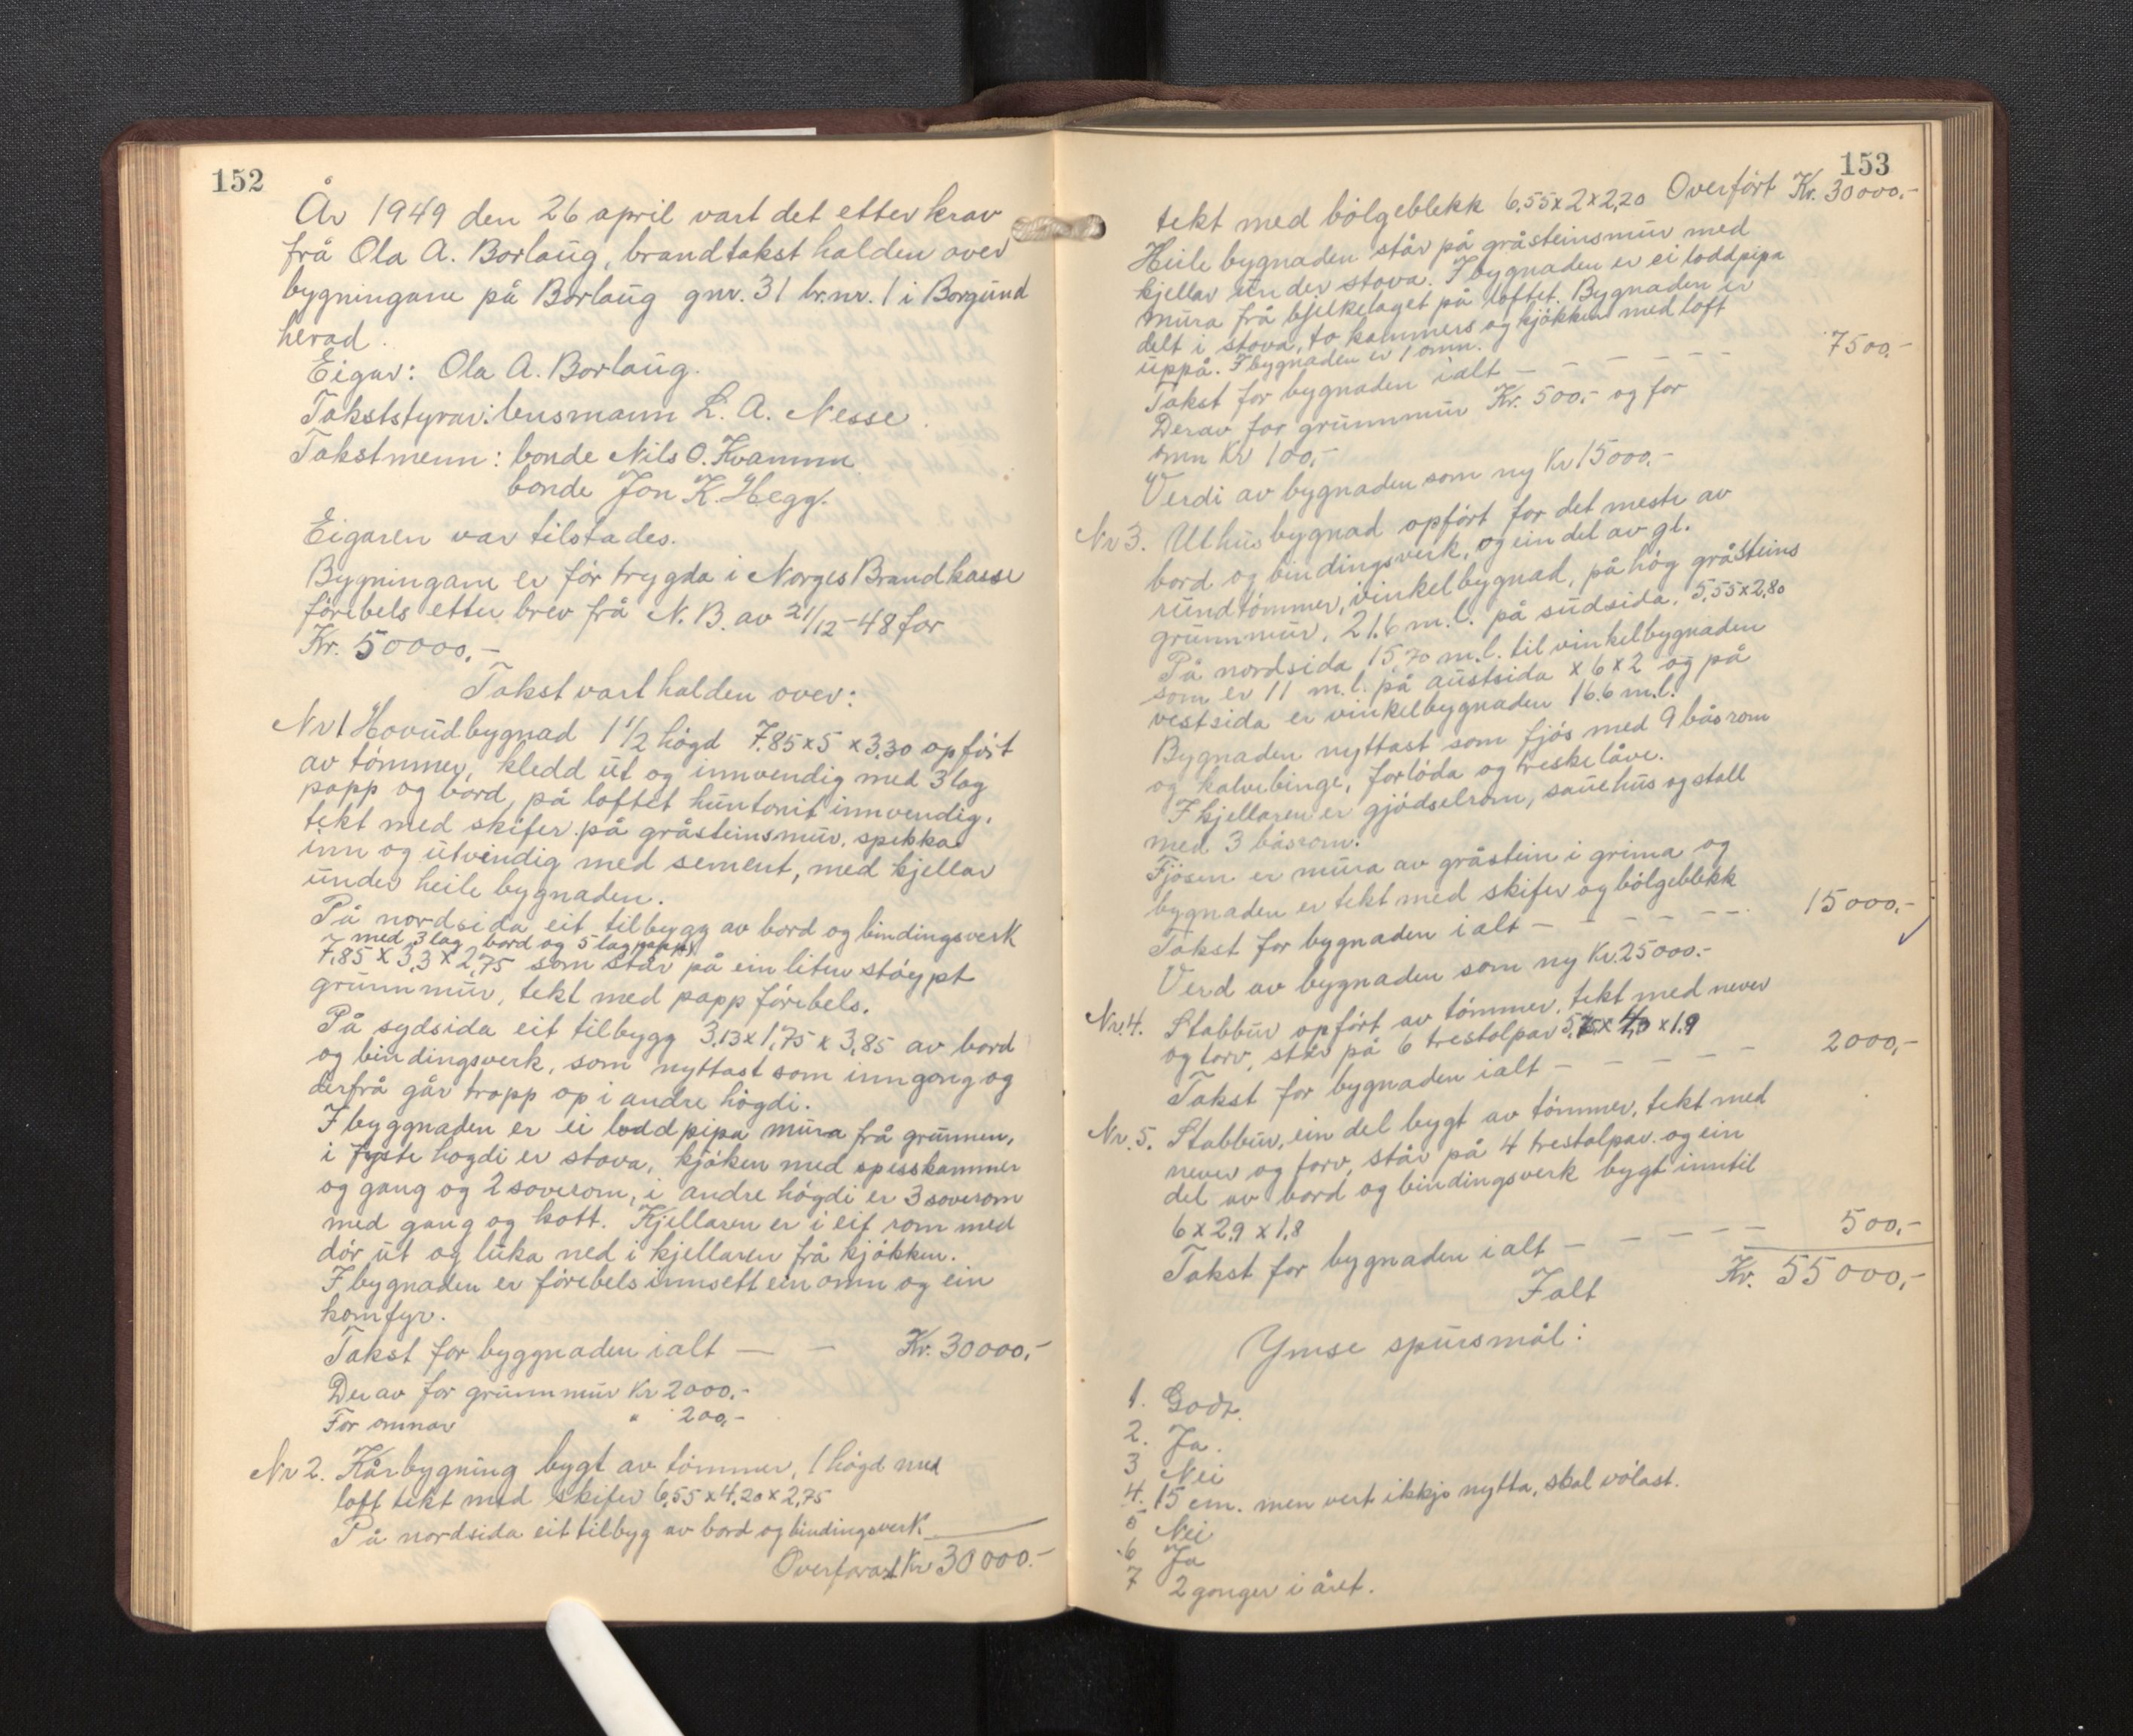 152
År 1949 den 26 april vart det etter krav
frå Ola A. Borlaug, brandtakst halden over
bygningane på Borlaug gnr. 31 br.nr. 1 i Borgund
herad.
Eigar: Ola A. Borlaug.
Takststyrar: lensmann L. A. Nesse.
Takstmenn: bonde Nils O. Kvamme
bonde Jon K. Hegg.
Eigaren var tilstades.
Bygningane er för trygda i Norges Brandkasse
förebels etter brev frå N.B. av 21/12-48 for
Kr. 50000,-
Takst vart halden over:
Nr 1 Hovudbygnad 1 1/2 högd 7.85 x 5 x 3,30 opfört
av tömmer, kledd ut og innvendig med 3 lag
papp og bord, på loftet huntonit innvendig,
tekt med skifer på gråsteinsmur, spekka
inn og utvendig med sement, med kjellar
under heile bygnaden.
På nordsida eit tilbygg av bord og bindingsverk
med 3 lag bord og 5 lag papp
7,85 x 3,3 x 2,75 som står på ein liten stöypt
grunnmur, tekt med papp förebels.
På sydsida eit tilbygg 3,13 x 1,75 x 3,85 av bord
og bindingsverk, som nyttast som inngang og
derfrå går trapp op i andre högdi.
I byggnaden er ei lodd pipa mura frå grunnen,
i fyste hogdi er stova, kjöken med spesskammer
og gang og 2 soverom, i andre högdi er 3 soverom
med gang og kott. Kjellaren er i eit rom med
dör ut og luka ned i kjellaren frå kjökken.
I bygnaden er förebels innsett ein omn og ein
komfyr.
Takst for byggnaden ialt — – Kr. 30000,-
Derav for grunnmur Kr 2000.-
For omnar " 200,-
Nr 2. Kårbygning bygt av tömmer, 1 högd med
loft tekt med skifer 6,55 x 4,20 x 2,75
På nordsida eit tilbyg av bord og bindingsverk
Overförast Kr 30000.-
153
tekt med bölgeblekk 6,55 x 2 x 2,20 Overfört Kr. 30000,-
Heile bygnaden står på gråsteinsmur med
kjellar under stova. I bygnaden er ei loddpipa
mura frå bjelkelaget på loftet. Bygnaden er
delt i stova, to kammers og kjökken med loft
uppå. I bygnaden er 1 omn.
Takst for bygnaden ialt – – – – – – 7500,-
Derav for grunnmur Kr. 500,- og for
omn Kr 100,-
Verdi av bygnaden som ny Kr 15000.-
Nr 3. Uthusbygnad opfört for det meste av
bord og bindingsverk, og ein del av gl.
rundtömmer, vinkelbygnad, på hög gråsteins
grunnmur. 21.6 m.l. på sudsida. 5,55 x 2,80
På nordsida 15,70 m.l. til vinkelbygnaden
som er 11 m.l. på austsida x 6 x 2 og på
vestsida er vinkelbygnaden 16.6 m.l.
Bygnaden nyttast som fjös med 9 båsrom
og kalvebinge, forlöda og treskelåve.
I kjellaren er gjödselrom, sauehus og stall
med 3 båsrom.
Fjösen er mura av gråstein i grima og
bygnaden er tekt med skifer og bölgeblekk
Takst for bygnaden ialt – – – – – – 15000,-
Verd av bygnaden som ny Kr. 25000.-
Nr. 4. Stabbur opfört av tömmer, tekt med never
og torv, står på 6 trestolpar x 1.9
Takst for bygnaden ialt – – – – – 2000,-
Nr. 5. Stabbur, ein del bygt av tömmer, tekt med
never og torv, står på 4 trestolpar og ein
del av bord og bindingsverk bygt inntil
6 x 2,9 x 1,8
Takst for bygnaden ialt – – – – – 500,-
Ialt Kr. 55000,-
Ymse spursmål:
1. Godt.
2. Ja.
3 Nei
4. 15 cm. men vert ikkje nytta, skal völast.
5 Nei
6 Ja
7 2 gonger i året.